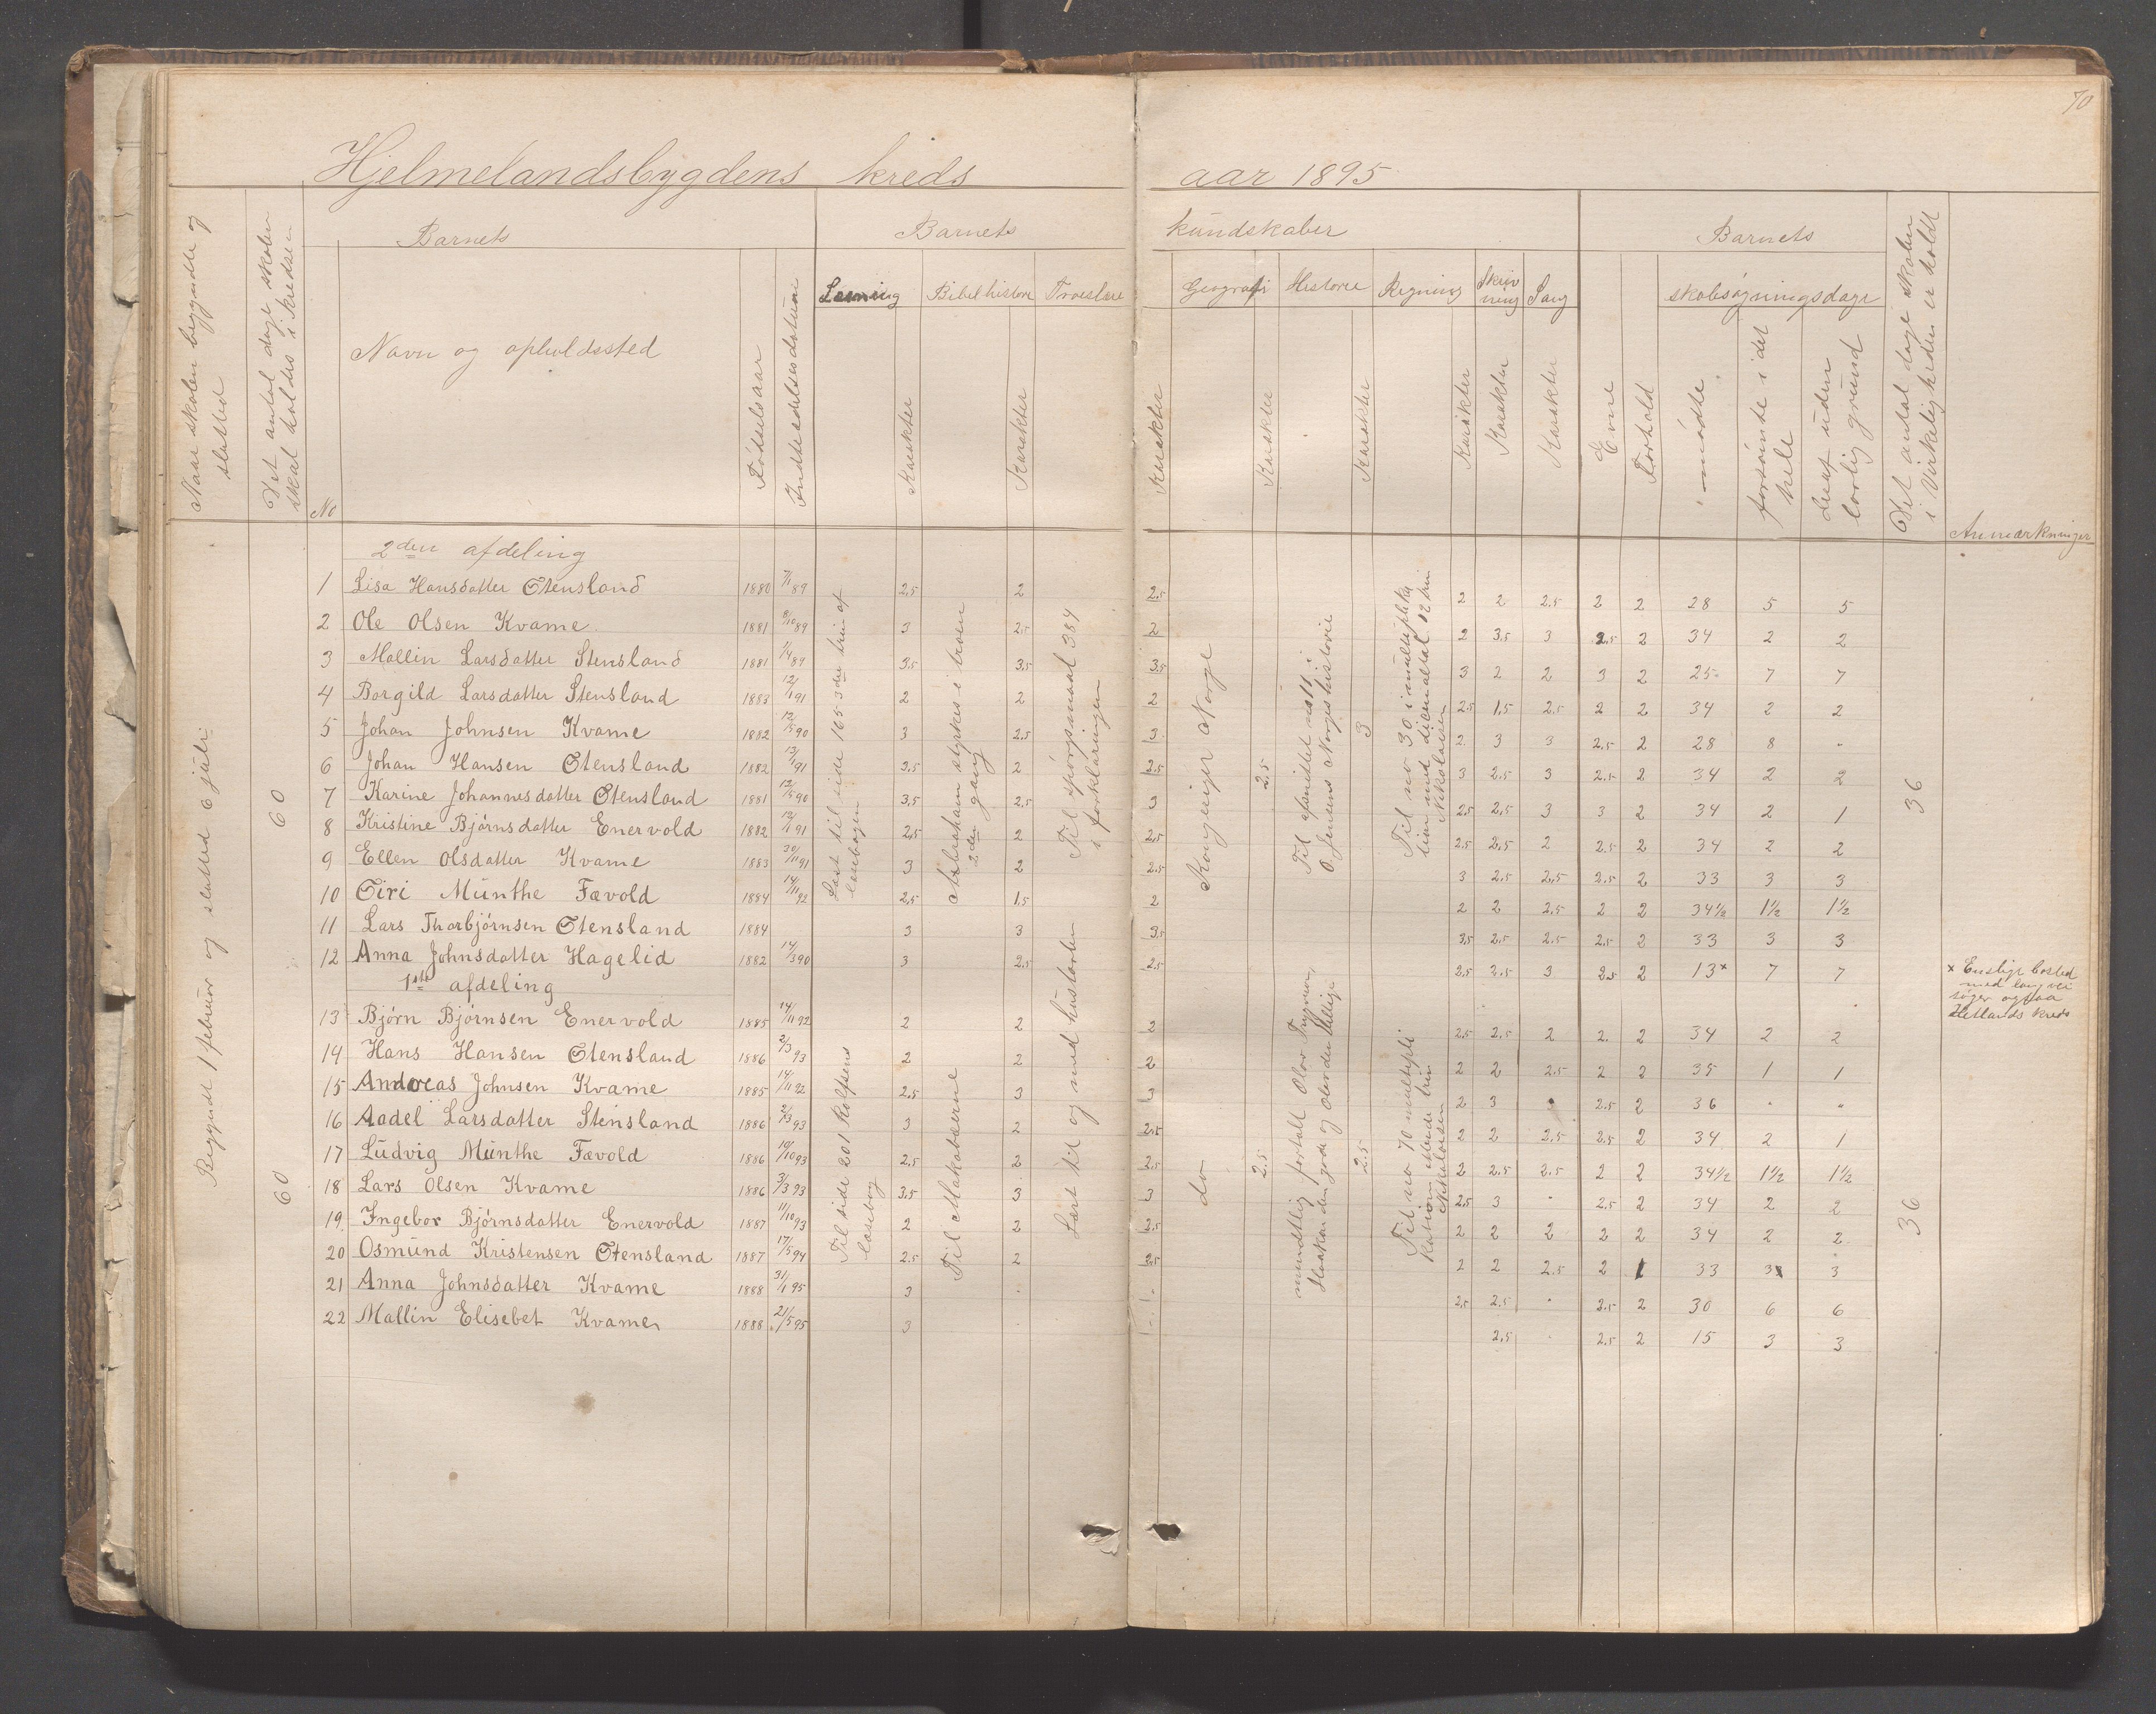 70
Hjelmelandsbygdens kreds aar 1895
Naar skolen begyndte og slutted
Det antal dage skolen skal holdes i kredsen
Barnets
Barnets kundskaber
Barnets
Det antal dage skolen i virkeligheden er holdt
Læsning Bibelhistorie Troeslære Geografi Historie Regning Skrivning Sang
skolesøgningsdage
No
Navn og opholdssted
Fødselsaar
Indtrædelsesdatum
Karakter Karakter Karakter Karakter Karakter Karakter Karakter Karakter
Evne Forhold
mødte
forsømte i det hele
deraf uden lovlig grund
Anmærkninger
Begyndt 1 februar og slutted 6 juli
60
60
2den afdeling
1 Lisa Hansdatter Stensland 1880 7/1 89 2,5 2 2,5 2 2 2,5 2 2 28 5 5
2 Ole Olsen Kvame 1881 8/10 89 3 2,5 2 2 3,5 3 2,5 2 34 2 2
3 Mallin Larsdatter Stensland 1881 7/1 89 3,5 3,5 3,5 3 2 2 3 2 25 7 7
4 Borgild Larsdatter Stensland 1883 12/1 91 2 2 2 2,5 1,5 2,5 2 2 34 2 2
5 Johan Johnsen Kvame 1882 12/5 90 3 2,5 3 2 3 3 2,5 2 28 8 "
6 Johan Hansen Stensland 1882 13/1 91 3,5 2 2,5 3 2,5 3 2,5 2 34 2 2
7 Karine Johannesdatter Stensland 1881 12/5 90 3,5 2,5 3 2,5 2,5 3 3 2 34 2 1
8 Kristine Bjørnsdatter Enervold 1882 12/1 91 2,5 2 2,5 2,5 2,5 2 2,5 2 34 2 2
9 Ellen Olsdatter Kvame 1883 20/11 91 3 2 2,5 3 2,5 2,5 2,5 2 33 3 3
10 Siri Munthe Fævold 1884 14/11 92 2,5 1,5 2 2 2 2,5 2 2 34½ 1½ 1½
11 Lars Thorbjørnsen Stensland 1884 3 3 3,5 3,5 2,5 2,5 2,5 2 33 3 3
12 Anna Johnsdatter Hagelid 1882 14/3 90 3 2,5 2,5 2,5 2,5 3 2,5 2 13x 7 7
Læst til side 165 3die trin af læsebogen
Abraham styrkes i troen 2den gang
Til spørgsmaal 384 i forklaringen
Kongeriget Norge
2,5
Til afsnittet no 11 i O. Jensens Norgeshistorie
3
Til no 30 i multiplikation med decimaltal 12 trin Nikolaisen
36
x Enslig bosted med lang vei søger ogsaa Hetlands kreds
1ste afdeling
13 Bjørn Bjørnsen Enervold 1885 14/11 92 2 2 2 2,5 2,5 2 2 2 34 2 2
14 Hans Hansen Stensland 1886 2/3 93 2 2 2 2 2 2,5 2 2 35 1 1
15 Andreas Johnsen Kvame 1885 14/11 92 2,5 3 3 2 3 . 2,5 2 36 " "
16 Aadel Larsdatter Stensland 1886 2/3 93 3 2 2,5 2 2 2,5 2,5 2 34 2 1
17 Ludvig Munthe Fævold 1886 19/10 93 2,5 2 2,5 2 2,5 2,5 2 2 34½ 1½ 1½
18 Lars Olsen Kvame 1886 3/3 93 3,5 3 3 2,5 3 " 2,5 2 34 2 2
19 Ingebor Bjørnsdatter Enervold 1887 11/10 93 2 2 2,5 2 2 2 2 2 34 2 2
20 Osmund Kristensen Stensland 1887 17/5 94 2,5 2 3,5 2 2 2,5 2 1 33 3 3
21 Anna Johnsdatter Kvame 1888 31/1 95 3 2,5 2,5 " 2,5 2 30 6 6
22 Mallin Elisebet Kvame 1888 21/5 95 3 2,5 2,5 2 15 3 3
Til side 201 Rolfsens læsebog
Til Makabæerne
Læst til og med hustavlen
do
2,5
mundtlig fortalt Olav Trygvason, Haakon den gode og Olav den hellige
2,5
Til no 70 multiplikation
Nikolaisen
36